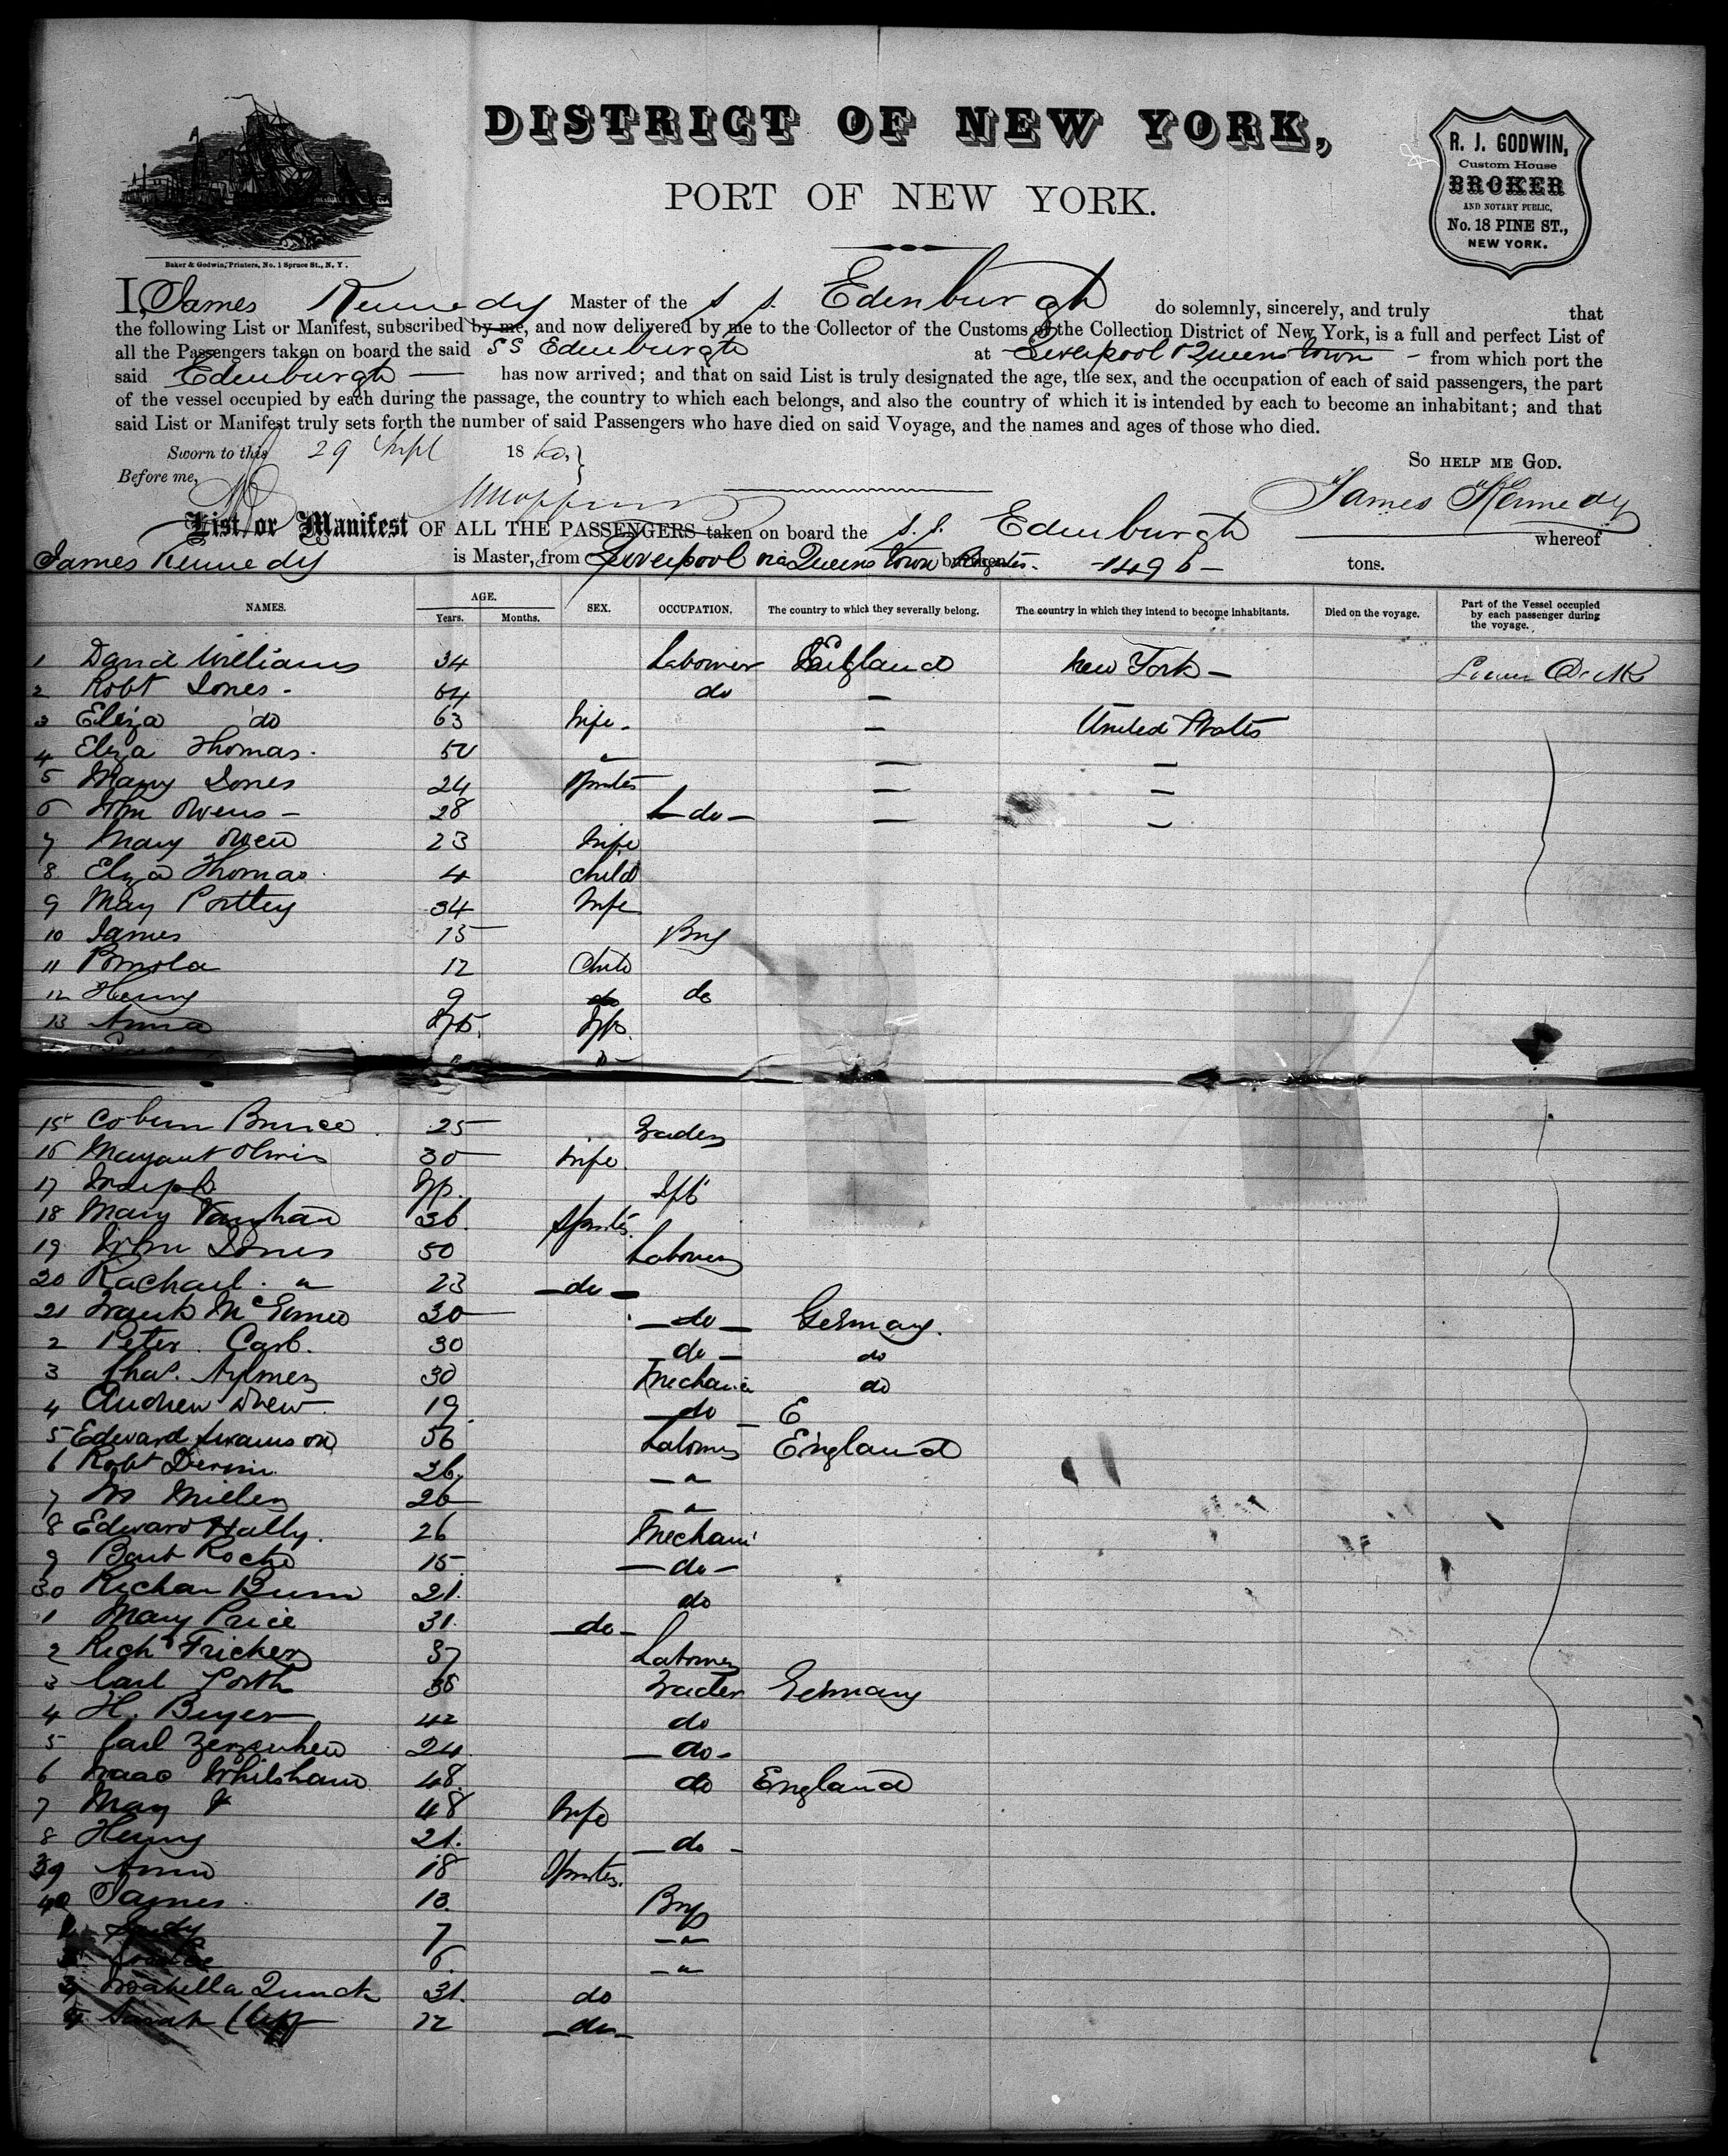 DISTRICT OF NEW YORK,
PORT OF NEW YORK.
R. J. GODWIN,
Custom House
BROKER
AND NOTARY PUBLIC,
No. 18 PINE ST.,
NEW YORK.
Baker & Godwin, Printers, No. 1 Spruce St., N. Y.
I, James Kennedy Master of the S S. Edenburgh do solemnly, sincerely, and truly that
the following List or Manifest, subscribed by me, and now delivered by me to the Collector of the Customs of the Collection District of New York, is a full and perfect List of
all the Passengers taken on board the said SS Edenburgh at Liverpool & Queenstown - from which port the
said Edenburgh — has now arrived; and that on said List is truly designated the age, the sex, and the occupation of each of said passengers, the part
of the vessel occupied by each during the passage, the country to which each belongs, and also the country of which it is intended by each to become an inhabitant; and that
said List or Manifest truly sets forth the number of said Passengers who have died on said Voyage, and the names and ages of those who died.
Sworn to this 29 Sept 1860,
So help me God.
Before me,
James Kennedy
List or Manifest OF ALL THE PASSENGERS taken on board the S. S. Edenburgh whereof
James Kennedy is Master, from Liverpool via Queenstown burthen -1496- tons.
NAMES. AGE. Years. Months. SEX. OCCUPATION. The country to which they severally belong. The country in which they intend to become inhabitants. Died on the voyage. Part of the Vessel occupied by each passenger during the voyage.
1 David Williams 34 Labourer England New York - Lower Deck
2 Robt Jones - 64 do —
3 Eliza do 63 Wife - — United States
4 Eliza Thomas. 50 " — —
5 Mary Jones 24 Spinster — —
6 Wm Owens - 28 L-do- — —
7 Mary Owen 23 Wife
8 Eliza Thomas 4 Child
9 Mary 34 Wife
10 James 15 Boy
11 12 Child
12 Henry 9 do do
13 Anna Inft. Inft.
15 Coburn Bruce 25 Trader
16 Margaret 30 Wife
17 Joseph Inft. Inft
18 Mary Vaughan 36 Spinster.
19 John Jones 50 Labourer
20 Rachael " 23 - do -
21 Frank 30 - do - Germany.
2 Peter Carb. 30 - do - do
3 Chas. Aylmer 30 Mechanic do
4 Andrew Drew 19 - do - E
5 Edward Swanson 56 Labourer England
6 Robt 26 - " -
7 Miller 26 - " -
8 Edward Hally. 26 Mechani
9 Bart Roche 15 - do -
30 Richar Bunn 21. do
1 Mary Price 31. - do -
2 Richd Fricker 37 Labourer
3 Carl Porth 38 Trader Germany
4 H. Beyer 42 do
5 Carl 24 - do -
6 Isaac Whilsham 48. do England
7 Mary 48 Wife
8 Henry 21. - do -
39 Anne 18 Spinster.
40 James 13. Boy
7 - " -
6. - " -
3 Isabella 31. do
4 Sarah 22 - do -